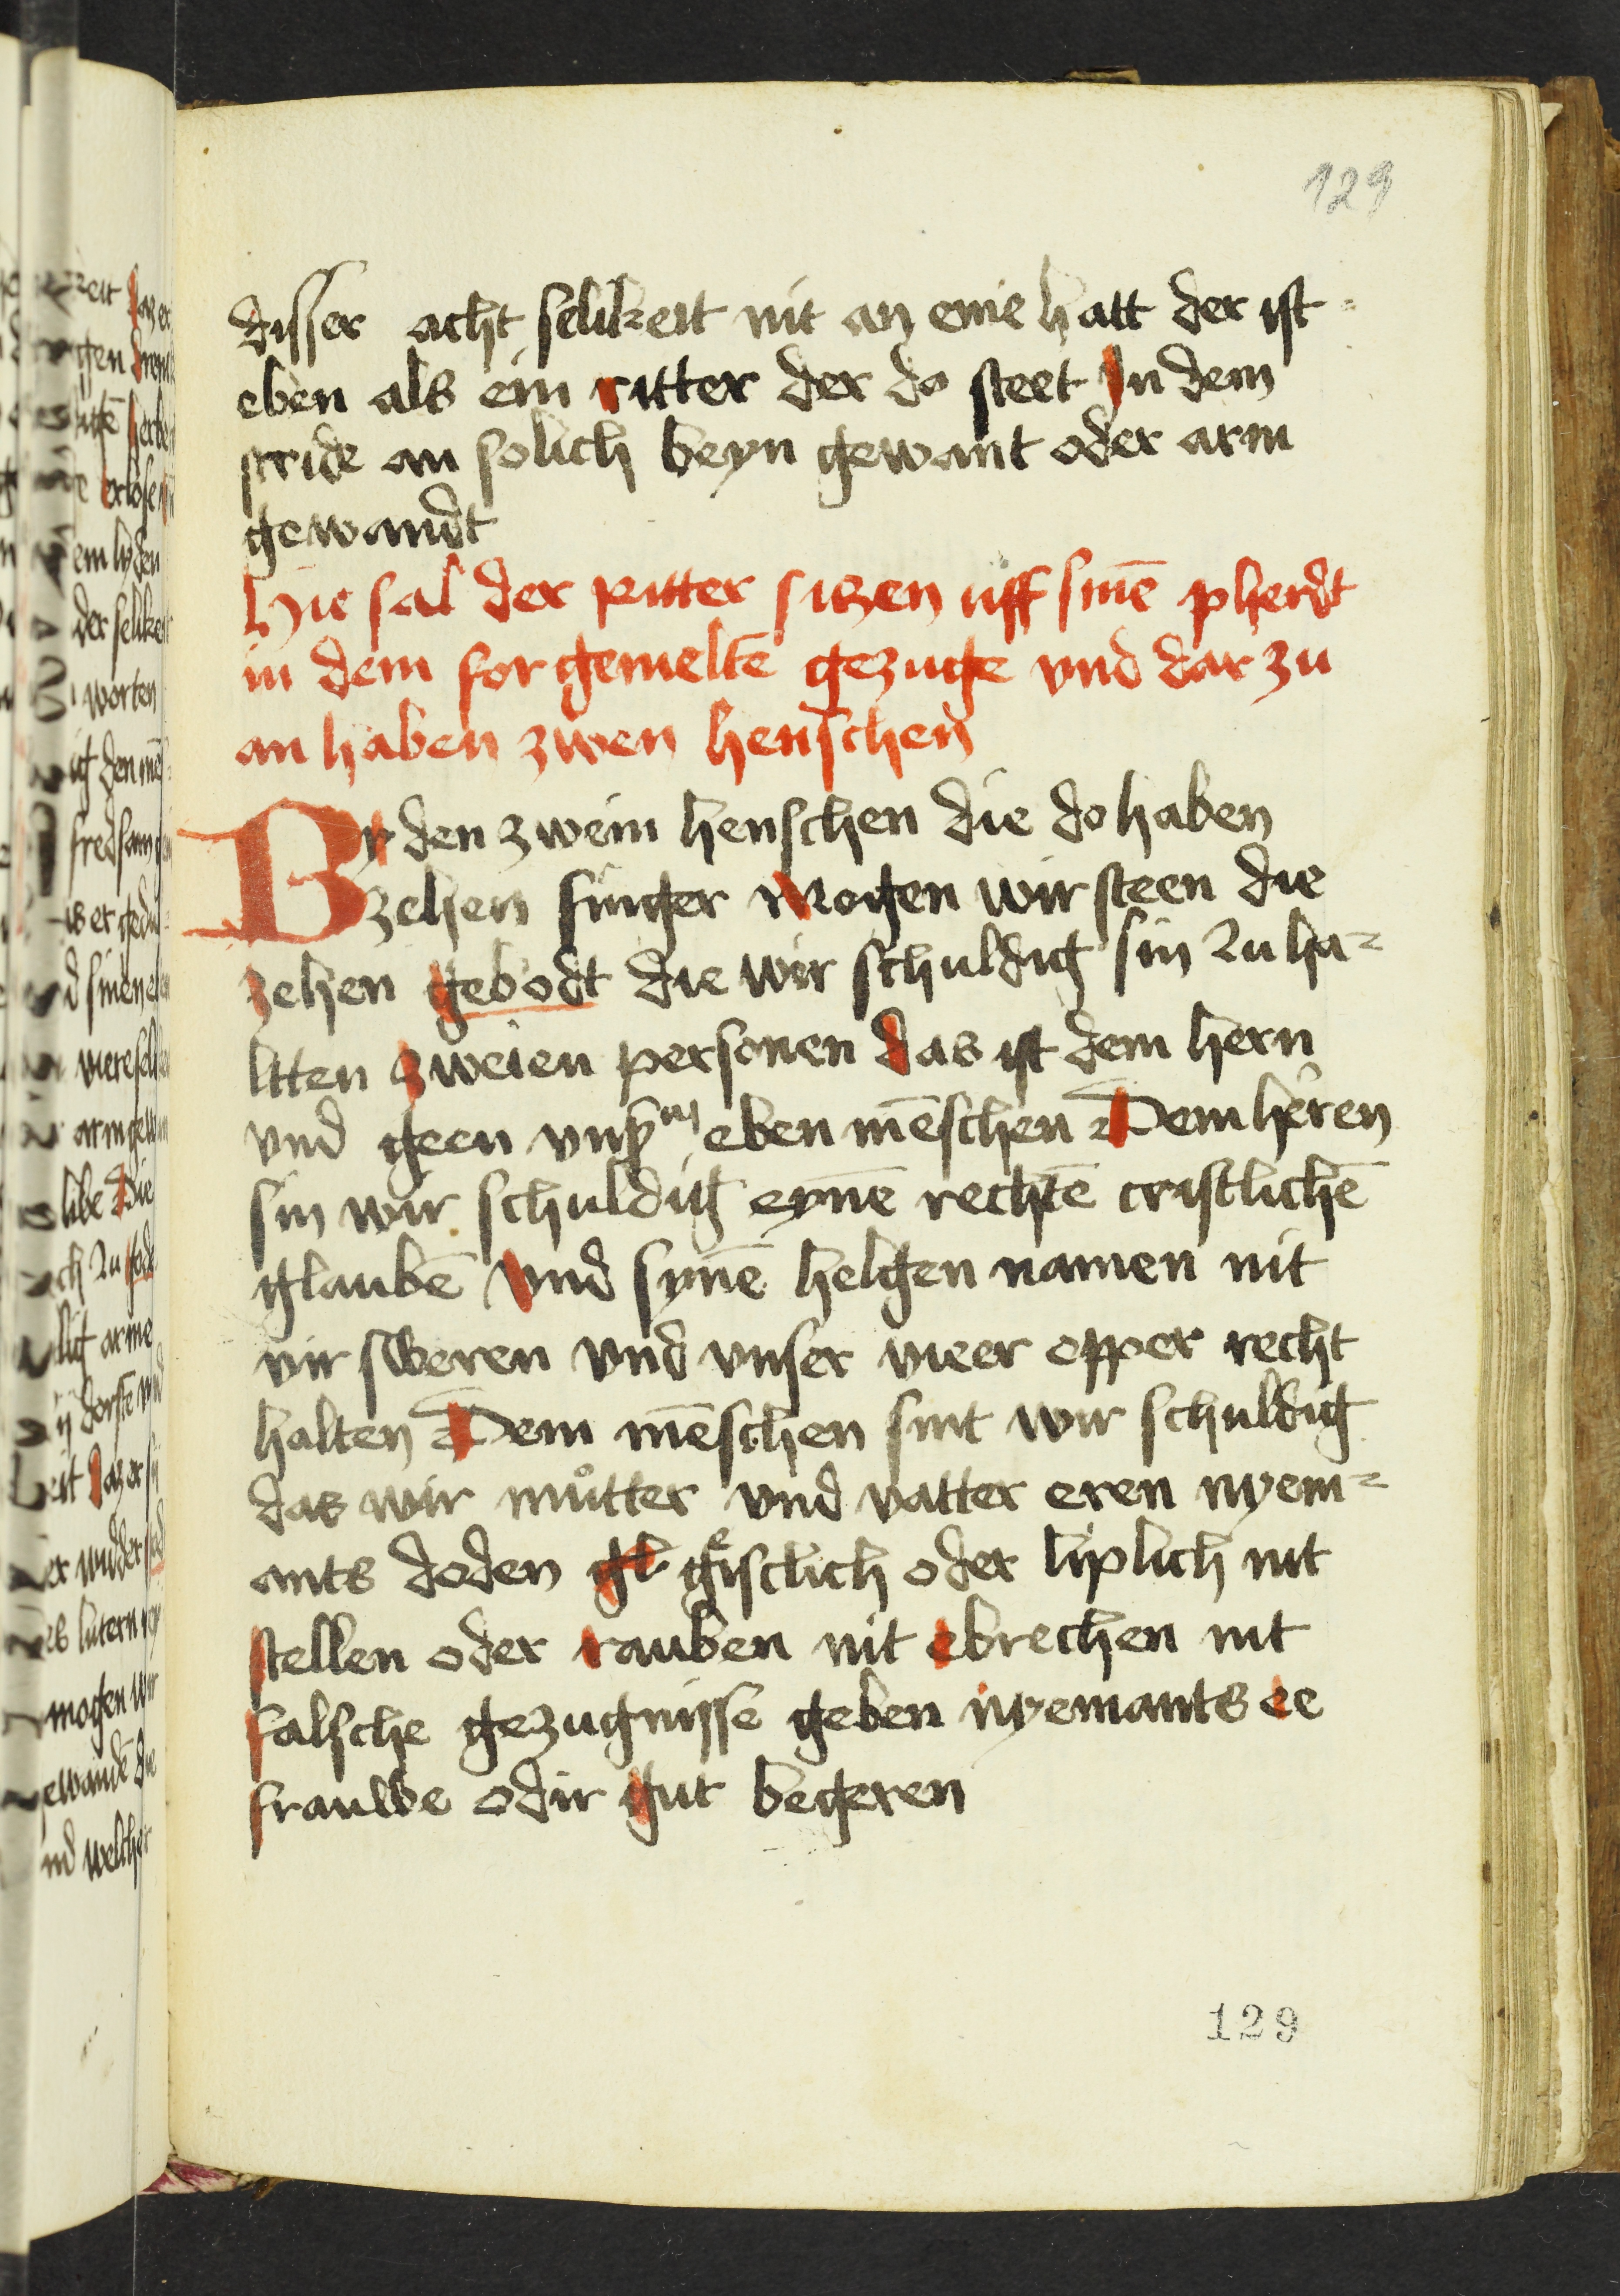 129
disser acht selikeit nit an eme hatt der ist
eben als ein ritter der do steet In dem
stride an solich beyn gewant oder arm
gewandt
Hie sal der Ritter sitzen uff sinē pherdt
in dem for gemeltē gezuge vnd dar zu
an haben zwen henschen
By den zwein henschen die do haben
zehen finger Mogen wir steen die
zehen gebodt die wir schuldig sin zu ha-
ltten zweien personen das ist dem hern
vnd geen vnßm eben mēschen Dem heren
sin wir schuldig eynē rechtē cristlichē
glaubē Vnd synē helgen namen nit
vir sweren vnd vnser vieer opper recht
halten Dem mēschen sint wir schuldig
das wir můtter vnd vatter eren nyem-
ants doden gl geistlich oder liplich nit
stellen oder rauben nit ebrechen nit
falsche gezugnisse geben nyemants ee
frauwe odir gut begeren
129